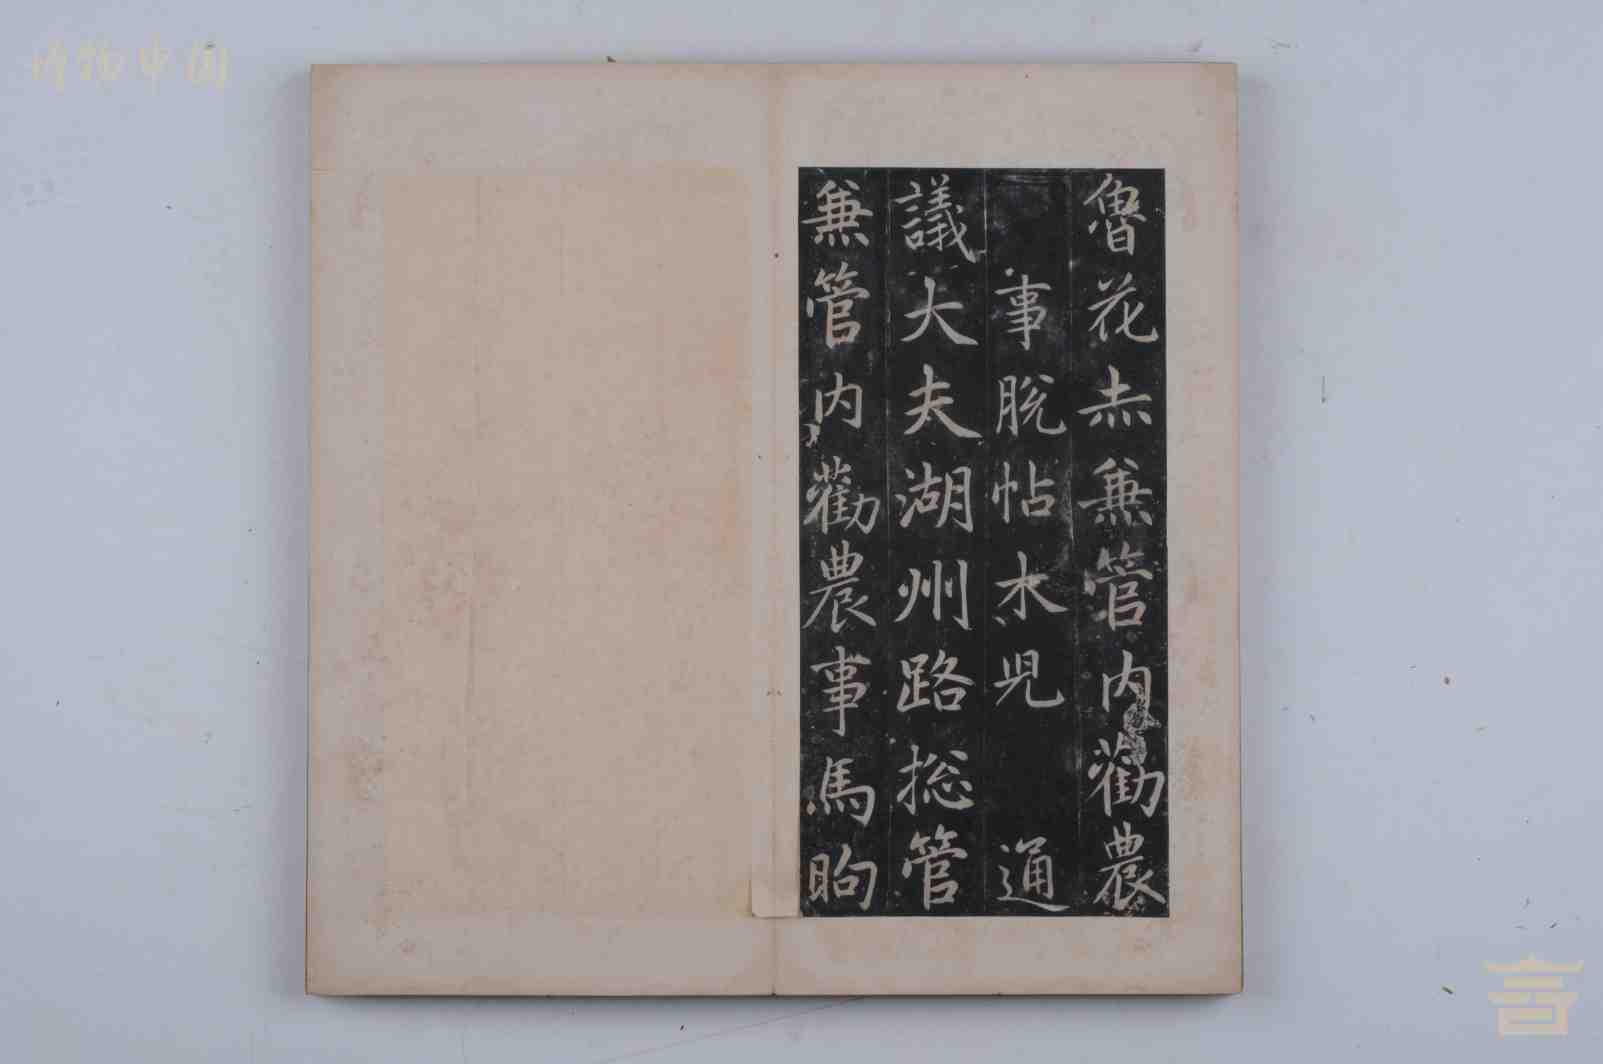 魯花赤兼管内勸農
事脫帖木児　通
議大夫湖州路捴管
兼管内勸農事馬昫
博物中国